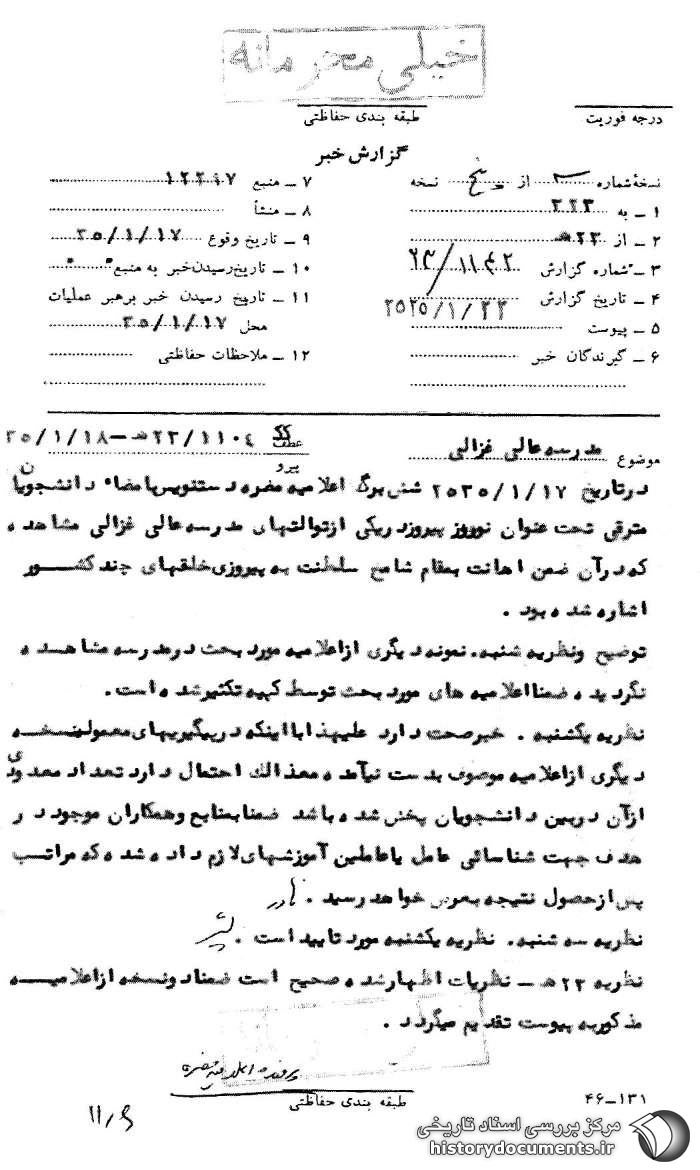 خیلی محرمانه
درجه فوریت
طبقه بندی حفاظتی
گزارش خبر
نسخهٔ شماره ۳ از پنج نسخه
۱ ـ به ۳۲۳
۲ ـ از ۲۳هـ
۳ ـ شماره گزارش ۲۳/۱۱۴۲
۴ ـ تاریخ گزارش ۲۵۳۵/۱/۲۲
۵ ـ پیوست
۶ ـ گیرندگان خبر
۷ ـ منبع
۸ ـ منشأ
۹ ـ تاریخ وقوع ۳۵/۱/۱۷
۱۰ ـ تاریخ رسیدن خبر به منبع " "
۱۱ ـ تاریخ رسیدن خبر برهبر عملیات
محل ۳۵/۱/۱۷
۱۲ ـ ملاحظات حفاظتی
موضوع مدرسه عالی غزالی
عطف ۲۳/۱۱۰۴هـ ـ ۳۵/۱/۱۸
پیرو
درتاریخ ۲۵۳۵/۱/۱۷ شش برگ اعلامیه مضره دستنویس بامضاء دانشجویان
مترقی تحت عنوان نوروز پیروزدریکی ازتوالتهای مدرسه عالی غزالی مشاهده
که درآن ضمن اهانت بمقام شامخ سلطنت به پیروزی خلقهای چند کشور
اشاره شده بود .
توضیح ونظریه شنبه. نمونه دیگری ازاعلامیه مورد بحث درمدرسه مشاهده
نگردیده ضمنا اعلامیه های مورد بحث توسط کپیه تکثیرشده است.
نظریه یکشنبه . خبرصحت دارد علیهذا بااینکه درپیگیریهای معموله نسخه
دیگری ازاعلامیه موصوف بدست نیآمده معذالک احتمال دارد تعداد معدودی
ازآن دربین دانشجویان پخش شده باشد ضمنا بمنابع وهمکاران موجود در
هدف جهت شناسائی عامل یاعاملین آموزشهای لازم داده شده که مراتب
پس ازحصول نتیجه بعرض خواهد رسید .
نظریه سه شنبه. نظریه یکشنبه مورد تایید است .
نظریه ۲۳هـ ـ نظریات اظهارشده صحیح است ضمنا دونسخه ازاعلامیه
مذکوربه پیوست تقدیم میگردد .
طبقه بندی حفاظتی
۱۳۱ـ۴۶
مرکز بررسی اسناد تاریخی
historydocuments.ir